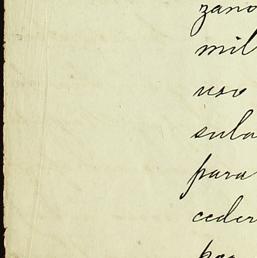 zano
mil
uso
sula
para
ceder